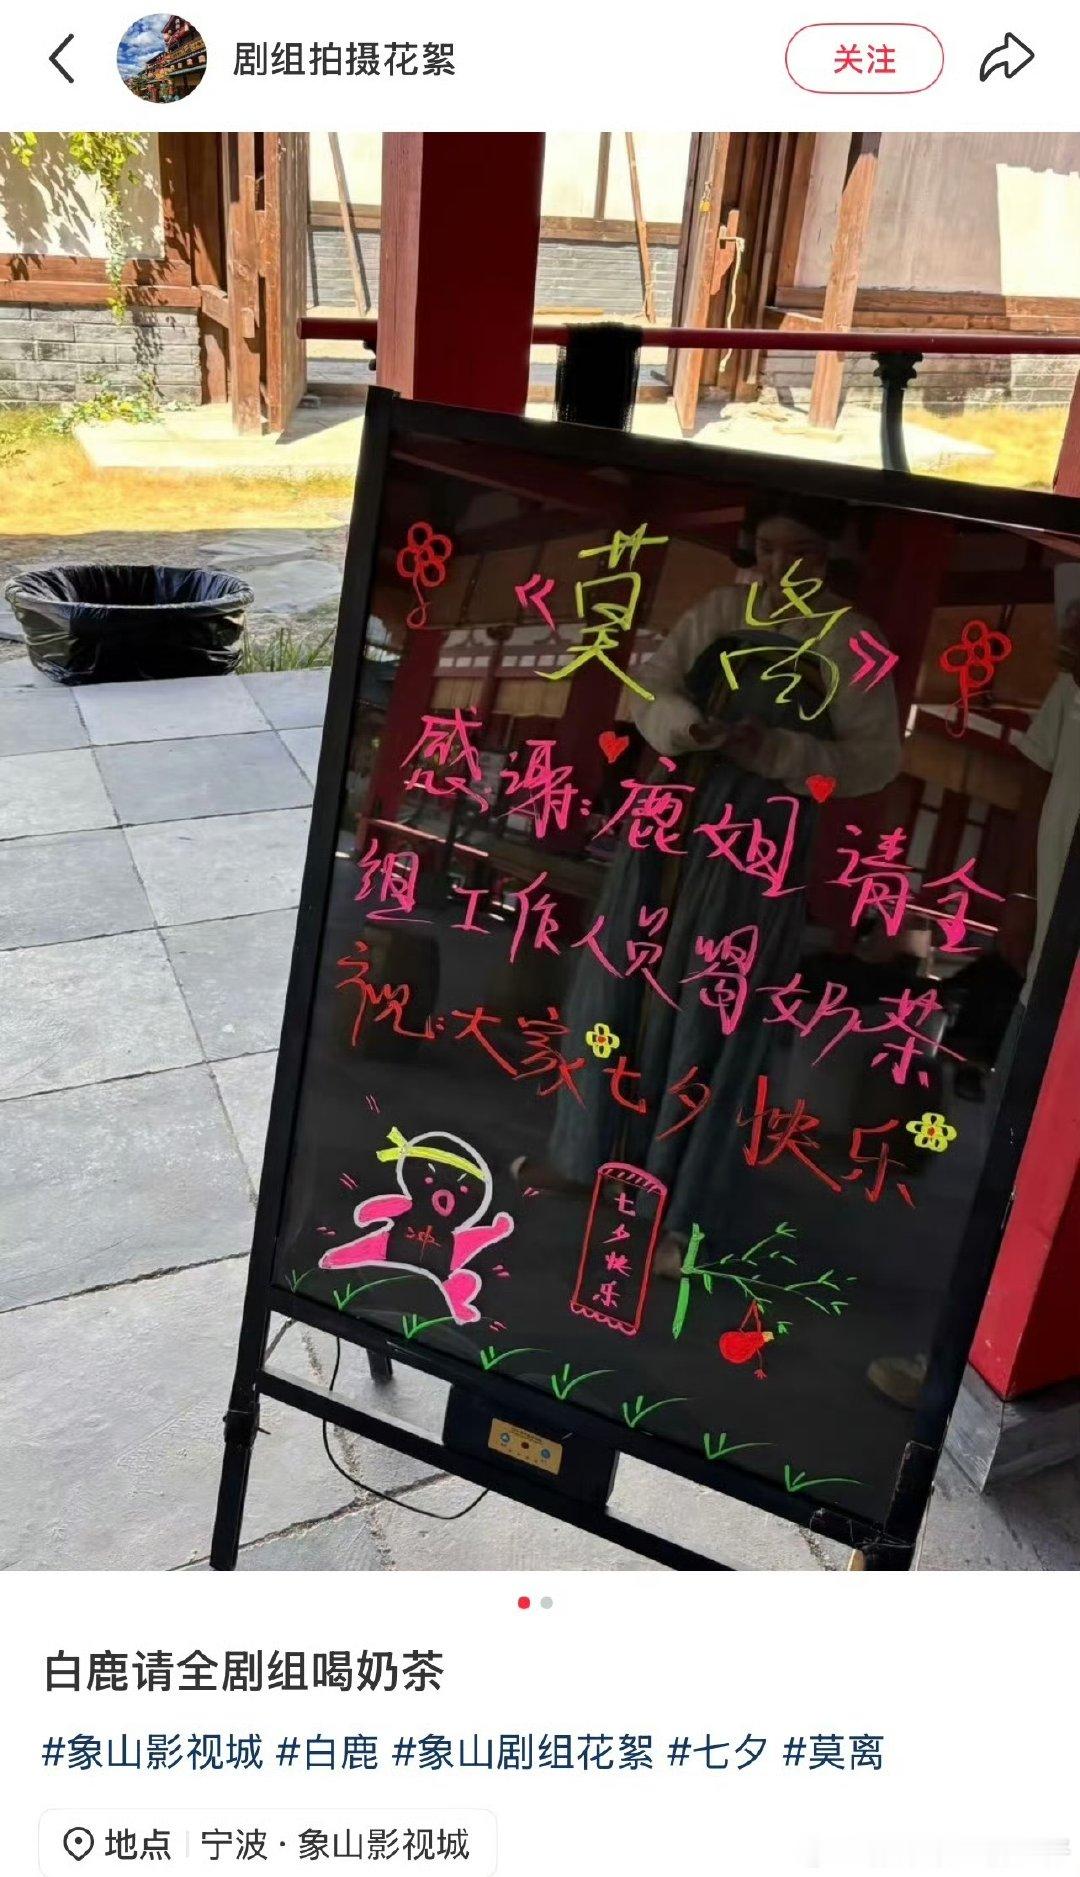 剧组拍摄花絮
关注
《莫离》
感谢:鹿姐请全
组工作人员喝奶茶
祝:大家七夕快乐
冲
七夕快乐
白鹿请全剧组喝奶茶
#象山影视城 #白鹿 #象山剧组花絮 #七夕 #莫离
地点 宁波·象山影视城